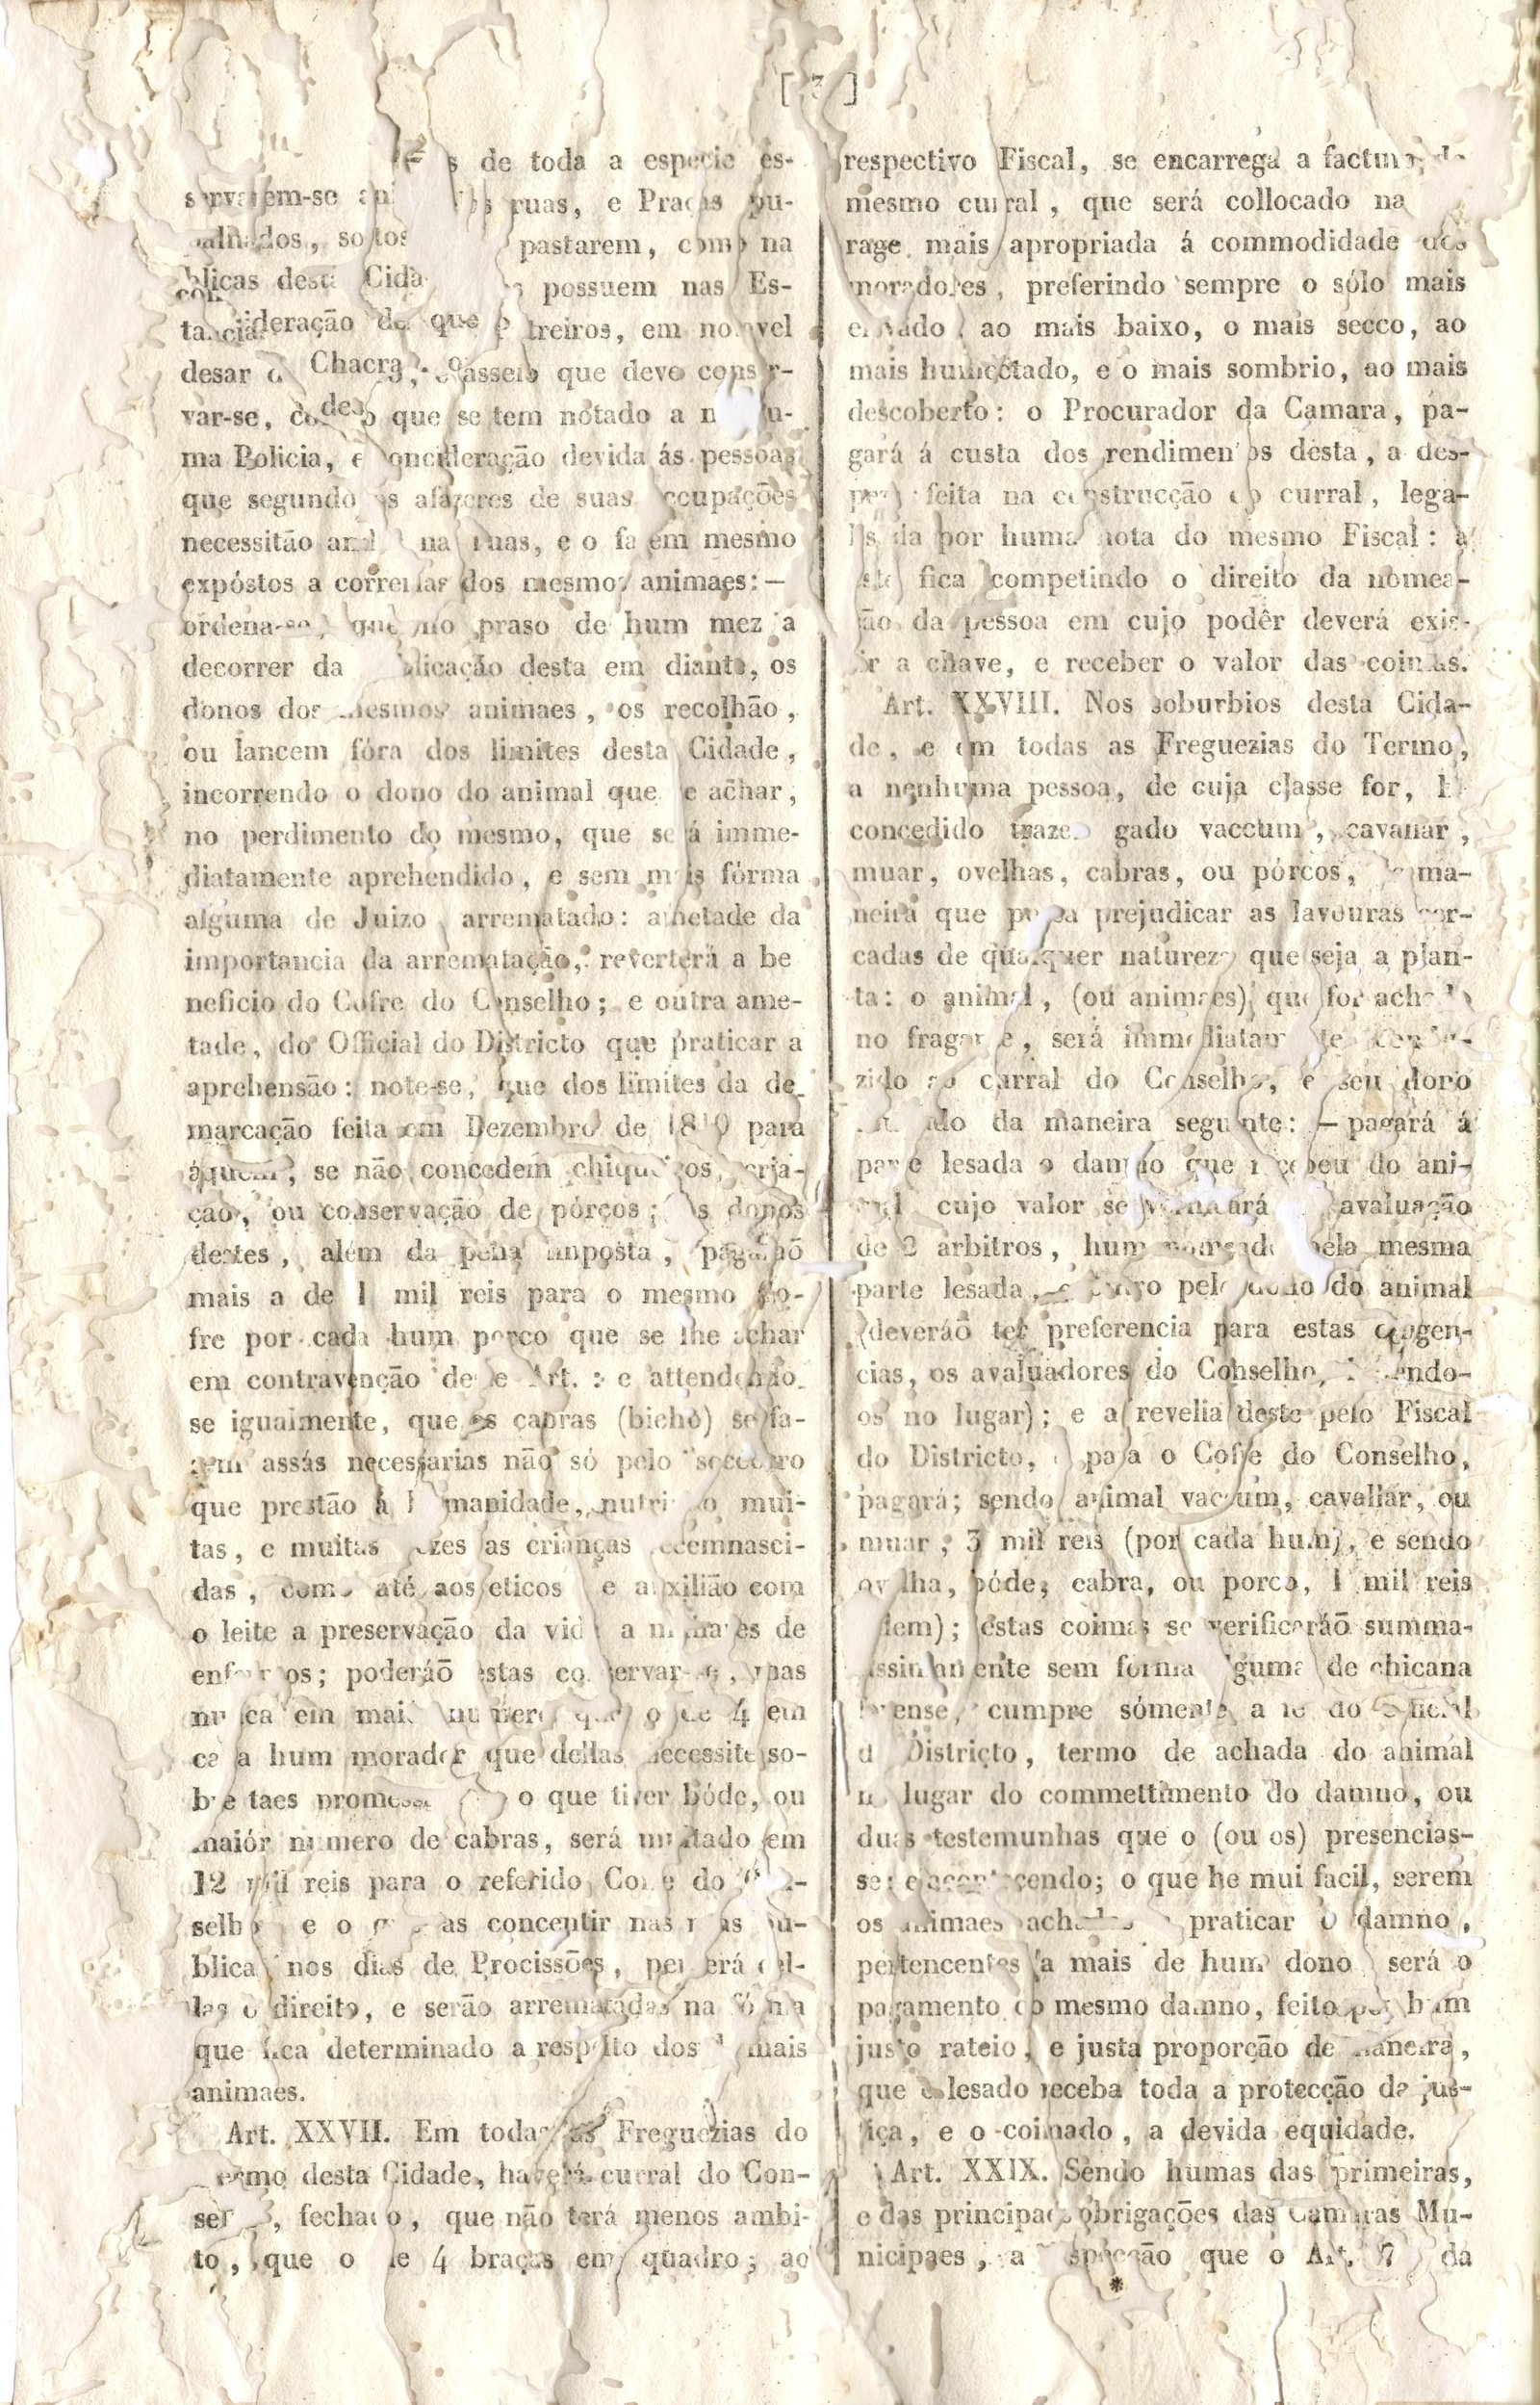 [ 3 ]
de toda a especie es-
ruas, e Praças pu-
soltos pastarem, como na
blicas desta possuem nas Es-
que em notavel
desar Chacra que deve conser-
var-se, que se tem notado a
ma Policia, e devida ás pessoas
que segundo os afazeres de suas occupações
necessitão ruas, e o fazem mesmo
expóstos a correrias dos mesmos animaes: —
ordena-se, que no praso de hum mez a
decorrer da publicação desta em diante, os
donos dos mesmos animaes, os recolhão,
ou lancem fóra dos limites desta Cidade,
incorrendo o dono do animal que se achar,
no perdimento do mesmo, que será imme-
diatamente aprehendido, e sem mais fórma
alguma de Juizo arrematado: ametade da
importancia da arrematação, reverterá a be
neficio do Cofre do Conselho; e outra ame-
tade, do Official do Districto que praticar a
aprehensão: note-se, que dos limites da de-
marcação feita em Dezembro de para
áquem, se não concedem chiqueiros,
ção, ou conservação de pórcos; os donos
destes, além da pena imposta, pagaráõ
mais a de 1 mil reis para o mesmo Co-
fre por cada hum porco que se lhe achar
em contravenção deste Art.: e attendendo-
se igualmente, que as cabras (bicho) se fa-
zem assás necessarias não só pelo soccorro
que prestão á humanidade, nutrindo mui-
tas, e muitas vezes as crianças recemnasci-
das, como até aos eticos e auxilião com
o leite a preservação da vida a milhares de
enfermos; poderáõ estas conservar-se, mas
nunca em mais numero que o de 4 em
cada hum morador que dellas necessite so-
bre taes o que tiver bóde, ou
maiór numero de cabras, será multado em
12 mil reis para o referido Cofre do Con-
selho e o as concentir nas ruas pu-
blicas nos dias de Procissões, perderá del-
las o direito, e serão arrematadas na fórma
que fica determinado a respeito dos demais
animaes.
Art. XXVII. Em todas as Freguezias do
Termo desta Cidade, haverá curral do Con-
selho, fechado, que não terá menos ambi-
to, que o de 4 braças em quadro; ao
respectivo Fiscal, se encarrega a factura do
mesmo curral, que será collocado na
rage mais apropriada á commodidade dos
moradores, preferindo sempre o sólo mais
elevado ao mais baixo, o mais secco, ao
mais humectado, e o mais sombrio, ao mais
descoberto: o Procurador da Camara, pa-
gará á custa dos rendimentos desta, a des-
peza feita na construcção do curral, lega-
lisada por huma nota do mesmo Fiscal: a
este fica competindo o direito da nomea-
ção da pessoa em cujo podêr deverá exis-
tir a chave, e receber o valor das coimas.
Art. XXVIII. Nos soburbios desta Cida-
de, e em todas as Freguezias do Termo,
a nenhuma pessoa, de cuja classe for,
concedido trazer gado vaccum, cavallar,
muar, ovelhas, cabras, ou pórcos, de ma-
neira que possa prejudicar as lavouras cer-
cadas de qualquer natureza que seja a plan-
ta: o animal, (ou animaes) que for achado
no fragante, será immediatamente condu-
zido ao curral do Conselho, e seu dono
da maneira seguinte: — pagará á
parte lesada o damno que recebeu do ani-
mal cujo valor se avaluação
de 2 arbitros, hum nomeado pela mesma
parte lesada, e outro pelo dono do animal
(deveráõ ter preferencia para estas diligen-
cias, os avaluadores do Conselho, havendo-
os no lugar); e a revelia deste pelo Fiscal
do Districto, e para o Cofre do Conselho,
pagará; sendo animal vaccum, cavallar, ou
muar, 3 mil reis (por cada hum), e sendo
ovelha, bóde, cabra, ou porco, 1 mil reis
(idem); estas coimas se verificaráõ summa-
rissimamente sem fórma alguma de chicana
forense, cumpre sómente a fé do Official
do Districto, termo de achada do animal
no lugar do commettimento do damno, ou
duas testemunhas que o (ou os) presencias-
se: e acontecendo; o que he mui facil, serem
os animaes achados a praticar o damno,
pertencentes a mais de hum dono será o
pagamento do mesmo damno, feito por hum
justo rateio, e justa proporção de maneira,
que o lesado receba toda a protecção da jus-
tiça, e o coimado, a devida equidade.
Art. XXIX. Sendo humas das primeiras,
e das principaes obrigações das Camaras Mu-
nicipaes, a que o Art. da
*